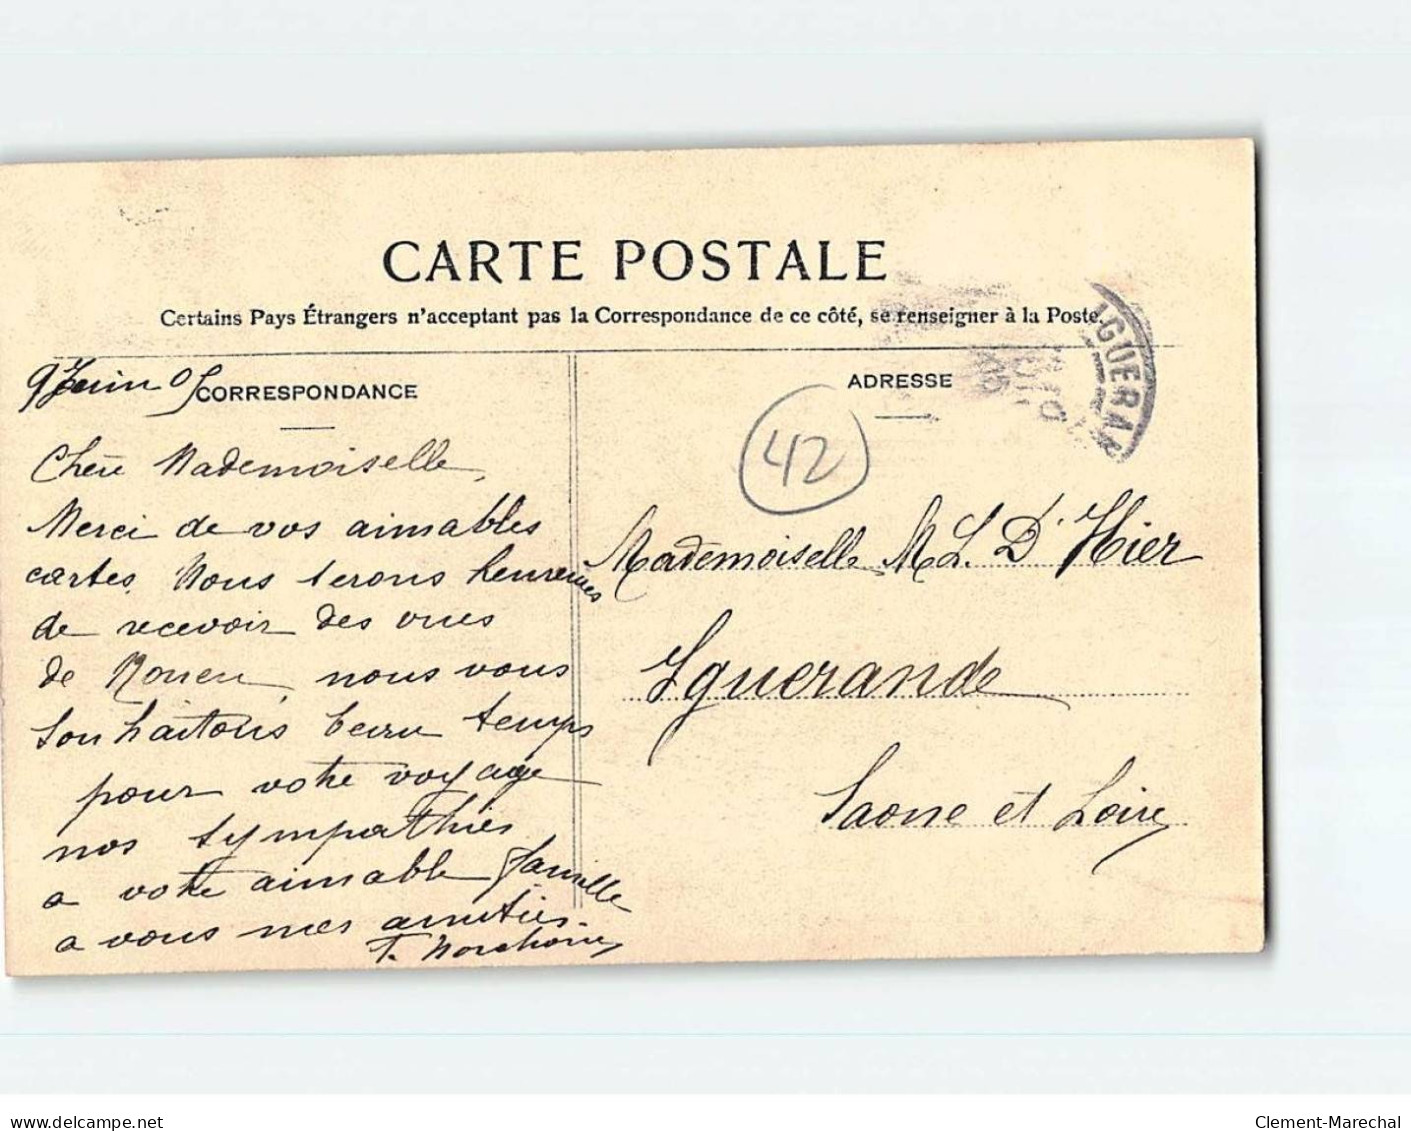 CARTE POSTALE
Certains Pays Étrangers n'acceptant pas la Correspondance de ce côté, se renseigner à la Poste.
9 Juin 05
CORRESPONDANCE
Chère Mademoiselle,
Merci de vos aimables
cartes. Nous serons heureuses
de recevoir des vues
de Rouen, nous vous
souhaitons beau temps
pour votre voyage
nos sympathies
a votre aimable famille
a vous mes amitiés.
ADRESSE
IGUERAN
42
Mademoiselle M L. D'Hier
Iguerande
Saone et Loire
delcampe.net
Clement-Marechal